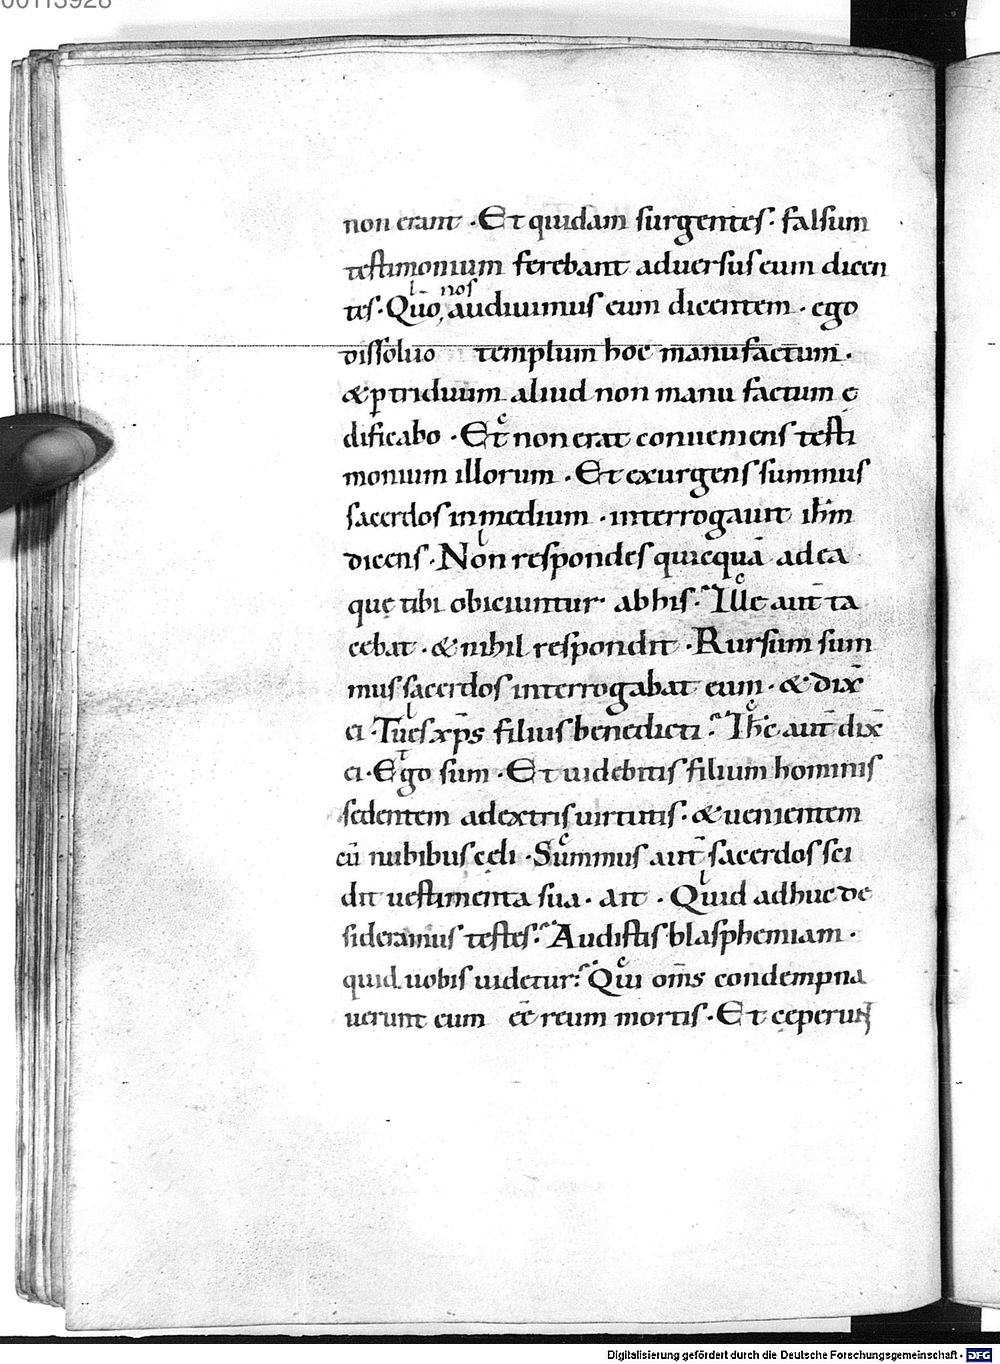 00113928
non erant · Et quidam surgentes · falsum
testimonium ferebant aduersus eum dicen
tes · Quo, nos audiuimus eum dicentem · ego
dissoluo templum hoc manufactum ·
& p triduum aliud non manu factum ę
dificabo · Et non erat conueniens testi
monium illorum · Et exurgens summus
sacerdos in medium · interrogauit ihm̄
dicens · Non respondes quicquā adea
quę tibi obiciuntur abhis · Ille aut̄ ta
cebat · & nihil respondit · Rursum sum
mus sacerdos interrogabat eum · & dix̄
ei · Tu es xp̄s filius benedicti · Ihc̄ aut̄ dix̄
ei · Ego sum · Et uidebitis filium hominis
sedentem adextris uirtutis · & uenientem
cū nubibus cęli · Summus aut̄ sacerdos sci
dit uestimenta sua · ait · Quid adhuc de
sideramus testes · Audistis blasphemiam ·
quid uobis uidetur · Qui om̄s condempna
uerunt eum ēē reum mortis · Et cęperunt
Digitalisierung gefördert durch die Deutsche Forschungsgemeinschaft - DFG